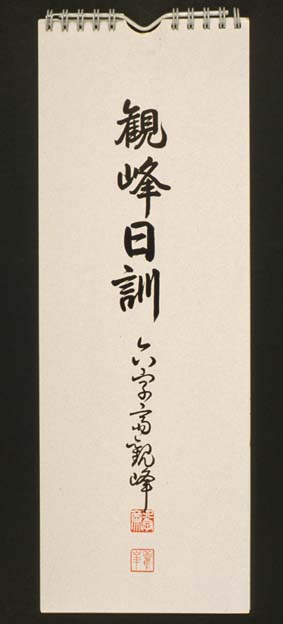 観峰日訓
六字斎観峰